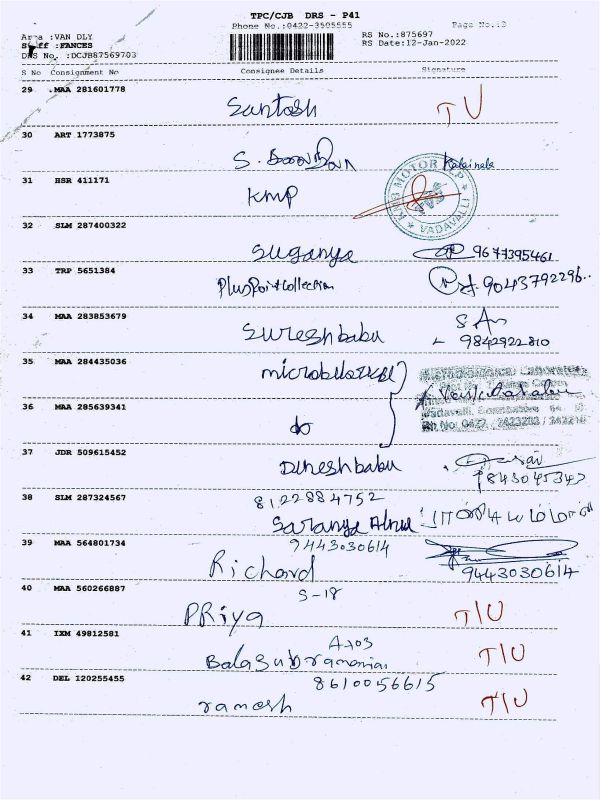 TPC/CJB DRS - P41
Phone No.:0422-3505555
Page No.:3
Area :VAN DLY
Staff :FANCES
DRS No. :DCJB87569703
RS No.:875697
RS Date:12-Jan-2022
S No Consignment No Consignee Details Signature
29 MAA 281601778
Santosh T U
30 ART 1773875
S.
31 HSR 411171
KMP
KMB MOTOR VADAVALLI
32 SLM 287400322
Suganya 9677395461
33 TRP 5651384
Plus Point Collection 9043792296
34 MAA 283853679
Sureshbabu 9842922810
35 MAA 284435036
36 MAA 285639341
do
37 JDR 509615452
Dineshbabu 9843045347
38 SLM 287324567
8122884752
Saranya
39 MAA 564801734
9443030614
Richard 9443030614
40 MAA 560266887
S-18
PRiya T/U
41 IXM 49812581
A103
Balasubramanian T/U
42 DEL 120255455
8610056615
ramesh T/U